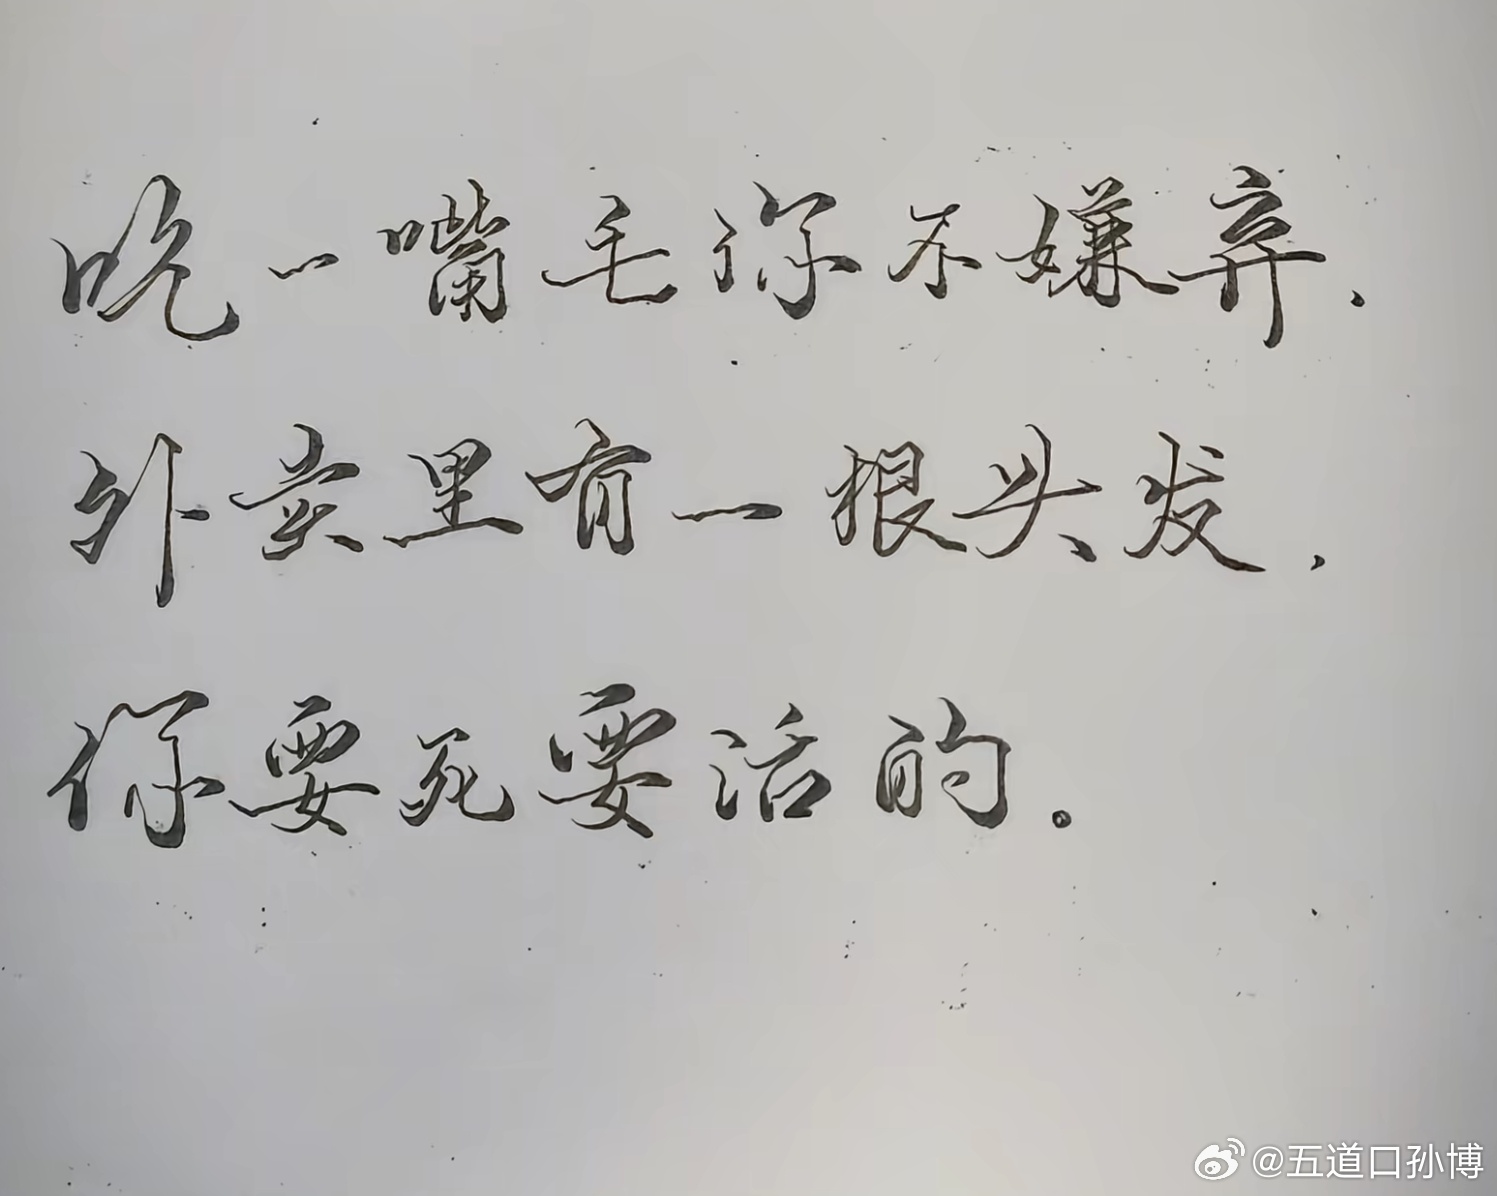 吃一嘴毛你不嫌弃，
外卖里有一根头发，
你要死要活的。
@五道口孙博